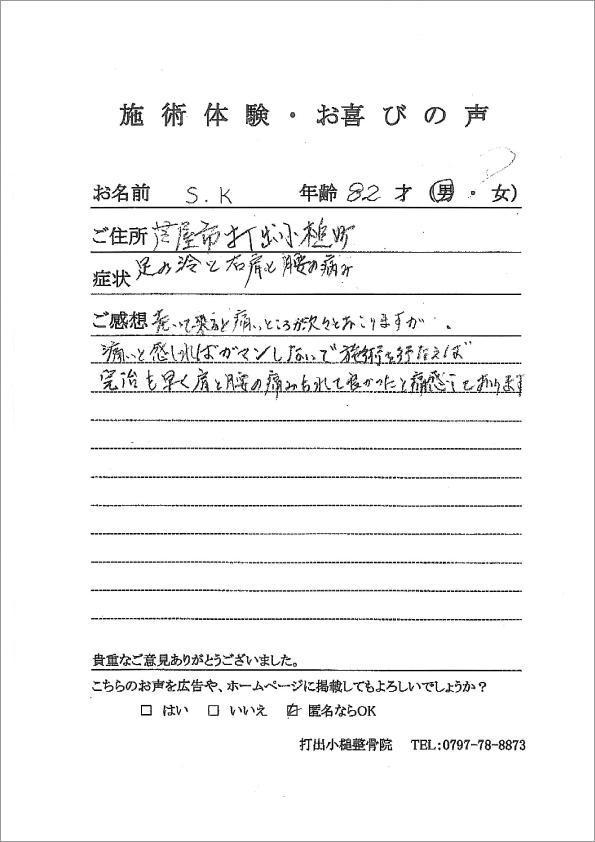 施術体験・お喜びの声
お名前 S.K 年齢 82 才 (男・女)
ご住所 芦屋市打出小槌町
症状 足の冷と右肩と腰の痛み
ご感想 と痛いところが次々とおこりますが.
痛いと感じればガマンしないで施術を行なえば
完治も早く肩と腰の痛みもれて良かったと痛感しております
貴重なご意見ありがとうございました。
こちらのお声を広告や、ホームページに掲載してもよろしいでしょうか?
□ はい □ いいえ ☑ 匿名ならOK
打出小槌整骨院 TEL:0797-78-8873